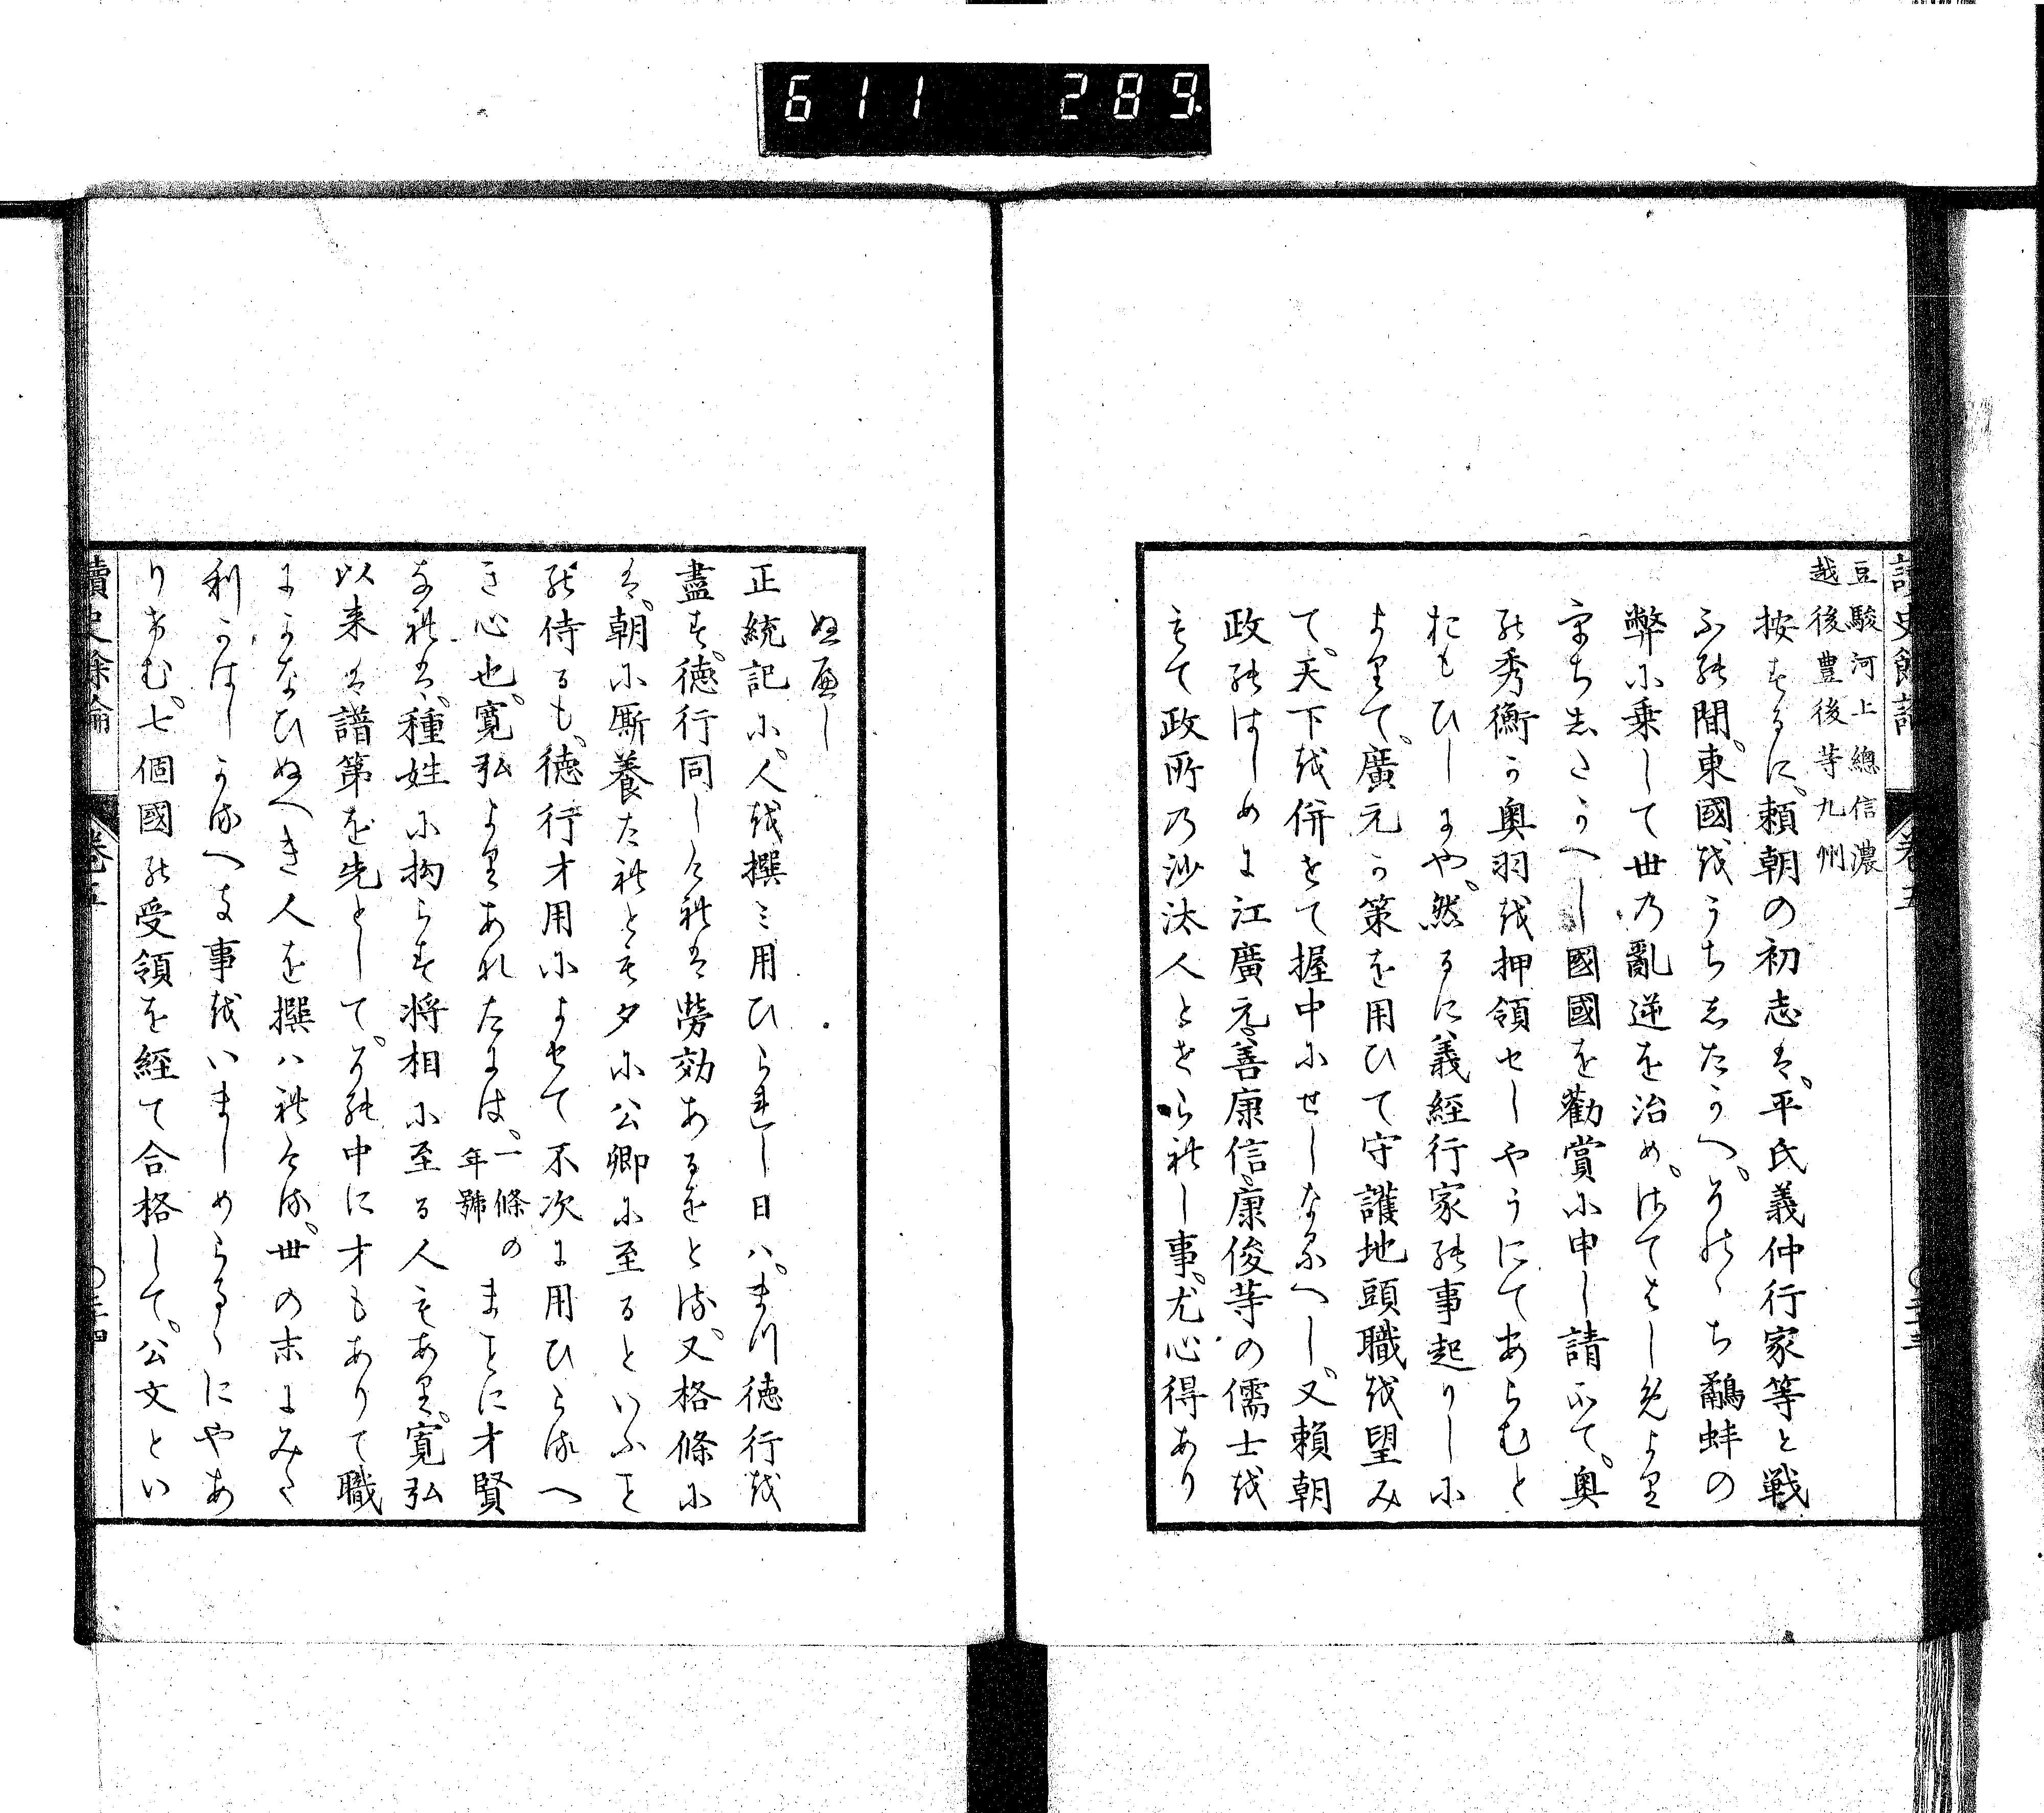 611 289
讀史餘論 卷五
豆駿河上總信濃
越後豊後等九州
按するに、頼朝の初志は、平氏義仲行家等と戦
ふ能間、東國越うちしたかへ、その後、鷸蚌の
弊尓乗して世乃亂逆を治め、さてはしめより
うち志たかへし國國を勸賞尓申し請て、奥
能秀衡か奥羽越押領せしやうにてあらむと
おもひしにや、然るに義経行家能事起りし尓
よりて、廣元か策を用ひて守護地頭職越望み
て、天下越併せて握中尓せしなるへし、又頼朝
政能はしめに江廣元、善康信、康俊等の儒士越
もて政所乃沙汰人とせられし事、尤心得あり
ぬへし
正統記尓、人越撰ミ用ひられし日ハ、まつ徳行越
盡す、徳行同しけれは勞効あるをとる、又格條尓
は、朝尓厮養たれとも夕尓公卿尓至るといふこと
能侍るも、徳行才用尓よせて不次に用ひらるへ
き心也、寛弘よりあれたには、一條の年號まことに才賢
なれは、種姓尓拘らす将相尓至る人もあり、寛弘
以来は譜第を先として、その中に才もありて職
にかなひぬへき人を撰ハれける、世の末にみた
利かはしかるへき事越いましめらるゝにやあ
りけむ、七個國能受領を経て合格して、公文とい
讀史餘論 卷五 〇三十四